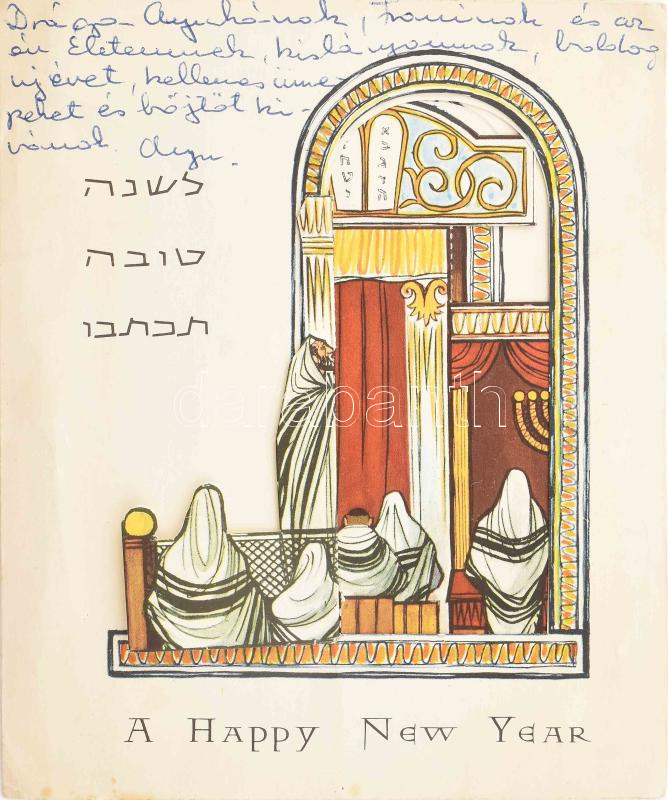 Drága Anyukának, Franinak és az
én Életemnek, kislányomnak, boldog
újévet, kellemes ünne-
peket és böjtöt ki-
vánok. Anyu.
לשנה
טובה
תכתבו
darabanth
A Happy New Year